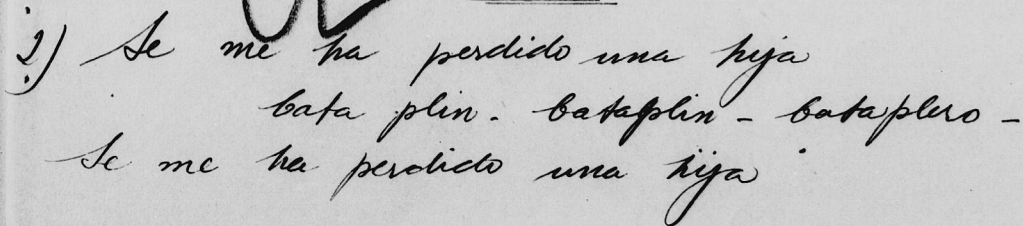 2) Se me ha perdido una hija
bata plin - bataplin - bataplero -
Se me ha perdido una hija